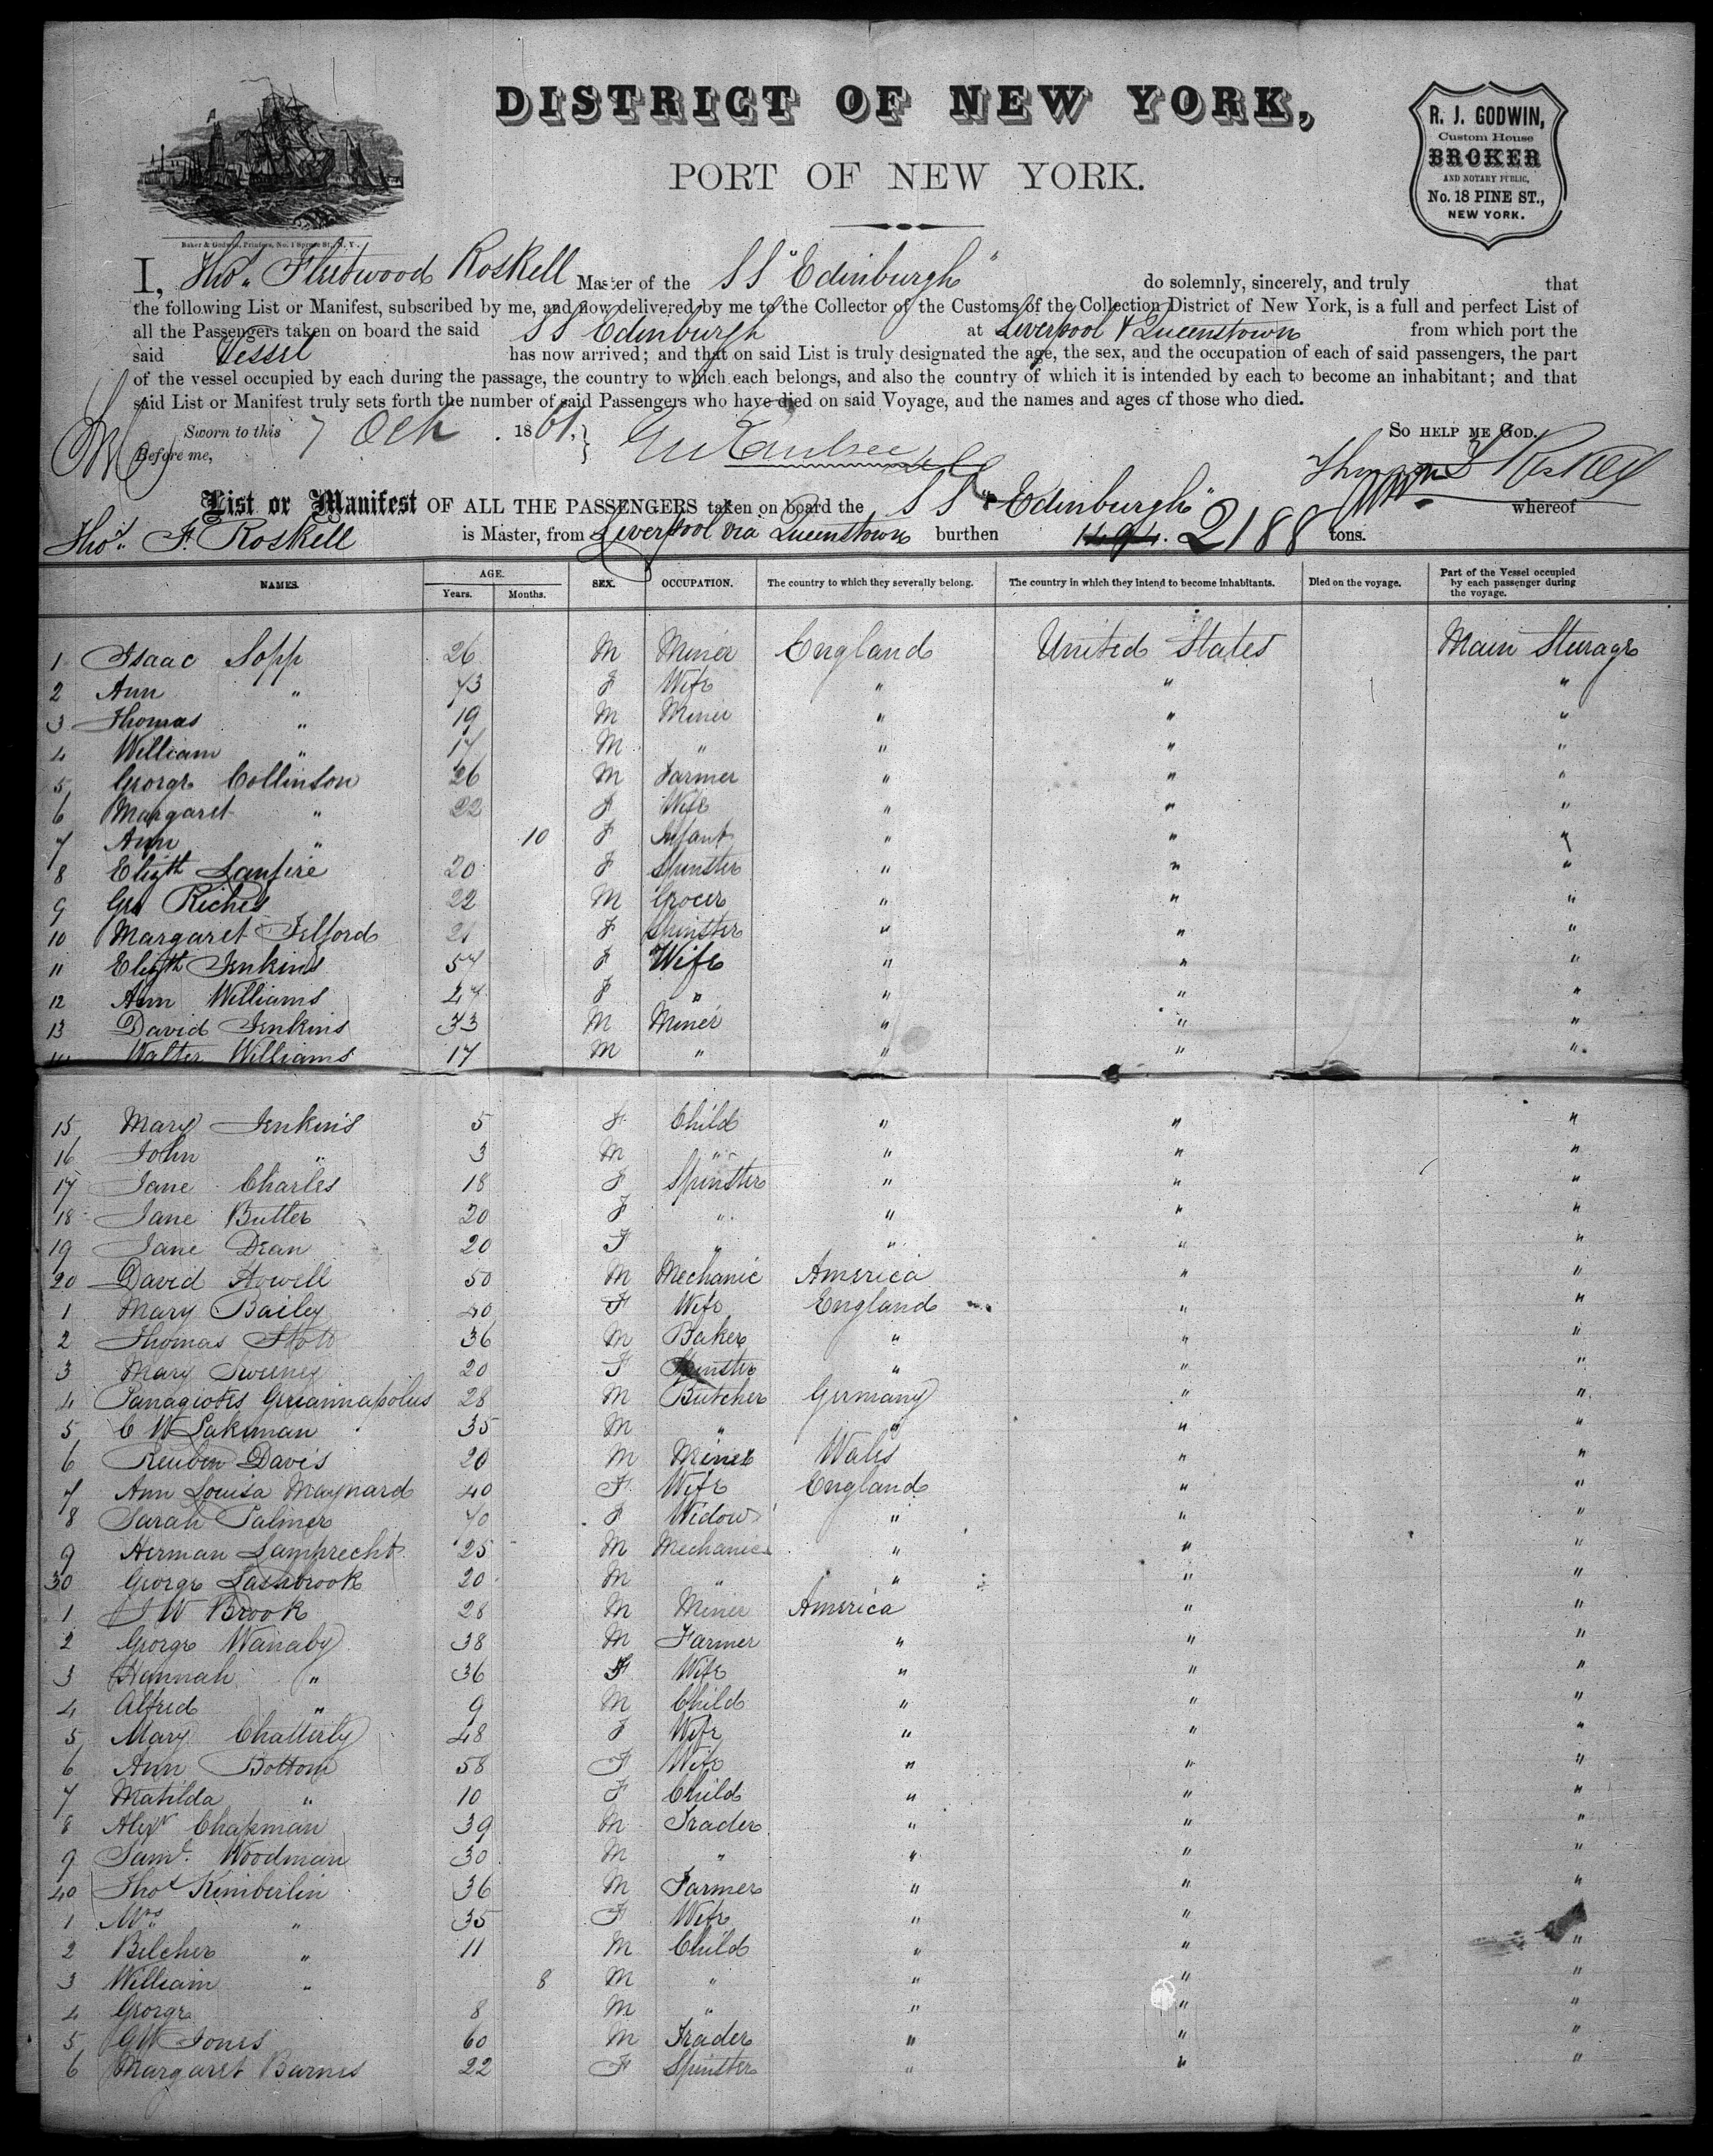 DISTRICT OF NEW YORK,
PORT OF NEW YORK.
R. J. GODWIN,
Custom House
BROKER
AND NOTARY PUBLIC,
No. 18 PINE ST.,
NEW YORK.
Baker & Godwin, Printers, No. 1 Spruce St., N. Y.
I, Thos. Fleetwood Roskell Master of the SS "Edinburgh" do solemnly, sincerely, and truly that
the following List or Manifest, subscribed by me, and now delivered by me to the Collector of the Customs of the Collection District of New York, is a full and perfect List of
all the Passengers taken on board the said SS Edinburgh at Liverpool & Queenstown from which port the
said Vessel has now arrived; and that on said List is truly designated the age, the sex, and the occupation of each of said passengers, the part
of the vessel occupied by each during the passage, the country to which each belongs, and also the country of which it is intended by each to become an inhabitant; and that
said List or Manifest truly sets forth the number of said Passengers who have died on said Voyage, and the names and ages of those who died.
Sworn to this 7 Oct. 1861, SO HELP ME GOD.
Before me,
List or Manifest OF ALL THE PASSENGERS taken on board the SS "Edinburgh" whereof
Thos. F. Roskell is Master, from Liverpool via Queenstown burthen 2188 tons.
NAMES. AGE. Years. Months. SEX. OCCUPATION. The country to which they severally belong. The country in which they intend to become inhabitants. Died on the voyage. Part of the Vessel occupied by each passenger during the voyage.
1 Isaac Sopp 26 M Miner England United States Main Steerage
2 Ann " 43 F Wife " " "
3 Thomas " 19 M Miner " " "
4 William " 17 M " " " "
5 George Collinson 26 M Farmer " " "
6 Margaret " 22 F Wife " " "
7 Ann " 10 F Infant " " "
8 Elizth 20 F Spinster " " "
9 Geo Riches 22 M Grocer " " "
10 Margaret Telford 21 F Spinster " " "
11 Elizth Jenkins 57 F Wife " " "
12 Ann Williams 27 F " " " "
13 David Jenkins 33 M Miner " " "
14 Walter Williams 17 M " " " "
15 Mary Jenkins 5 F Child " " "
16 John " 3 M " " " "
17 Jane Charles 18 F Spinster " " "
18 Jane Butler 20 F " " " "
19 Jane Dean 20 F " " " "
20 David Howell 50 M Mechanic America " "
1 Mary Bailey 40 F Wife England " "
2 Thomas Stott 36 M Baker " " "
3 Mary Sweeney 20 F Spinster " " "
4 Panagiotes 28 M Butcher Germany " "
5 C W Lakeman 35 M " " " "
6 Reuben Davis 20 M Miner Wales " "
7 Ann Louisa Maynard 40 F Wife England " "
8 Sarah Palmer 70 F Widow " " "
9 Herman Lamprecht 25 M Mechanic " " "
30 George Lashbrook 20 M " " " "
1 J W Brook 28 M Miner America " "
2 George Wanaby 38 M Farmer " " "
3 Hannah " 36 F Wife " " "
4 Alfred " 9 M Child " " "
5 Mary Chatterly 48 F Wife " " "
6 Ann Bottom 58 F Wife " " "
7 Matilda " 10 F Child " " "
8 Alexr Chapman 39 M Trader " " "
9 Saml. Woodman 30 M " " " "
40 Thos Kimberlin 36 M Farmer " " "
1 Mrs " 35 F Wife " " "
2 Belcher " 11 M Child " " "
3 William " 8 M " " " "
4 George 8 M " " " "
5 GW Jones 60 M Trader " " "
6 Margaret Barnes 22 F Spinster " " "